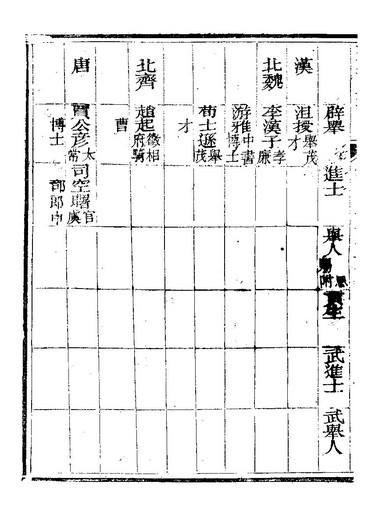 辟舉 進士 舉人 貢生 武進士 武舉人
漢 沮授舉茂才
北魏 李渙子孝廉
游雅中書博士
荀士遜舉茂才
北齊 趙起徵相府騎曹
唐 賈公彥太常博士 司空曙官虞部郎中